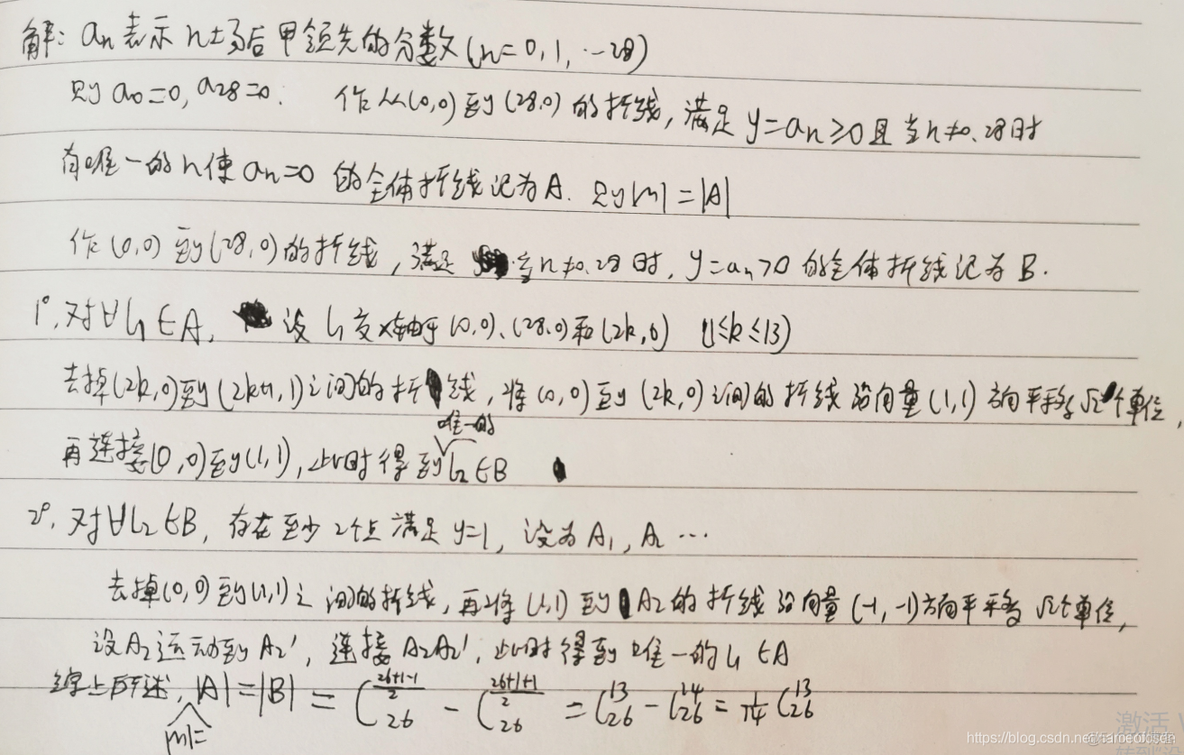 解: aₙ表示n场后甲领先的分数(n=0,1,…28)
则a₀=0, a₂₈=0. 作从(0,0)到(28,0)的折线,满足y=aₙ≥0且当n≠0,28时
有唯一的n使aₙ=0的全体折线记为A. 则|M|=|A|
作(0,0)到(28,0)的折线,满足当n≠0,28时, y=aₙ>0的全体折线记为B.
1°. 对∀l₁∈A, 设l₁交x轴于(0,0)、(28,0)和(2k,0) (1≤k≤13)
去掉(2k,0)到(2k+1,1)之间的折线,将(0,0)到(2k,0)之间的折线沿向量(1,1)方向平移√2个单位,
唯一的
再连接(0,0)到(1,1),此时得到l₂∈B
2°. 对∀l₂∈B, 存在至少2个点满足y=1, 设为A₁, A₂…
去掉(0,0)到(1,1)之间的折线,再将(1,1)到A₂的折线沿向量(-1,-1)方向平移√2个单位,
设A₂运动到A₂′, 连接A₂A₂′, 此时得到唯一的l₁∈A
综上所述, |A|=|B| = C_{26}^{\frac{26+1-1}{2}} - C_{26}^{\frac{26+1+1}{2}} = C_{26}^{13} - C_{26}^{14} = \frac{1}{14} C_{26}^{13}
|M|=
激活
https://blog.csdn.net/nameofcsdn